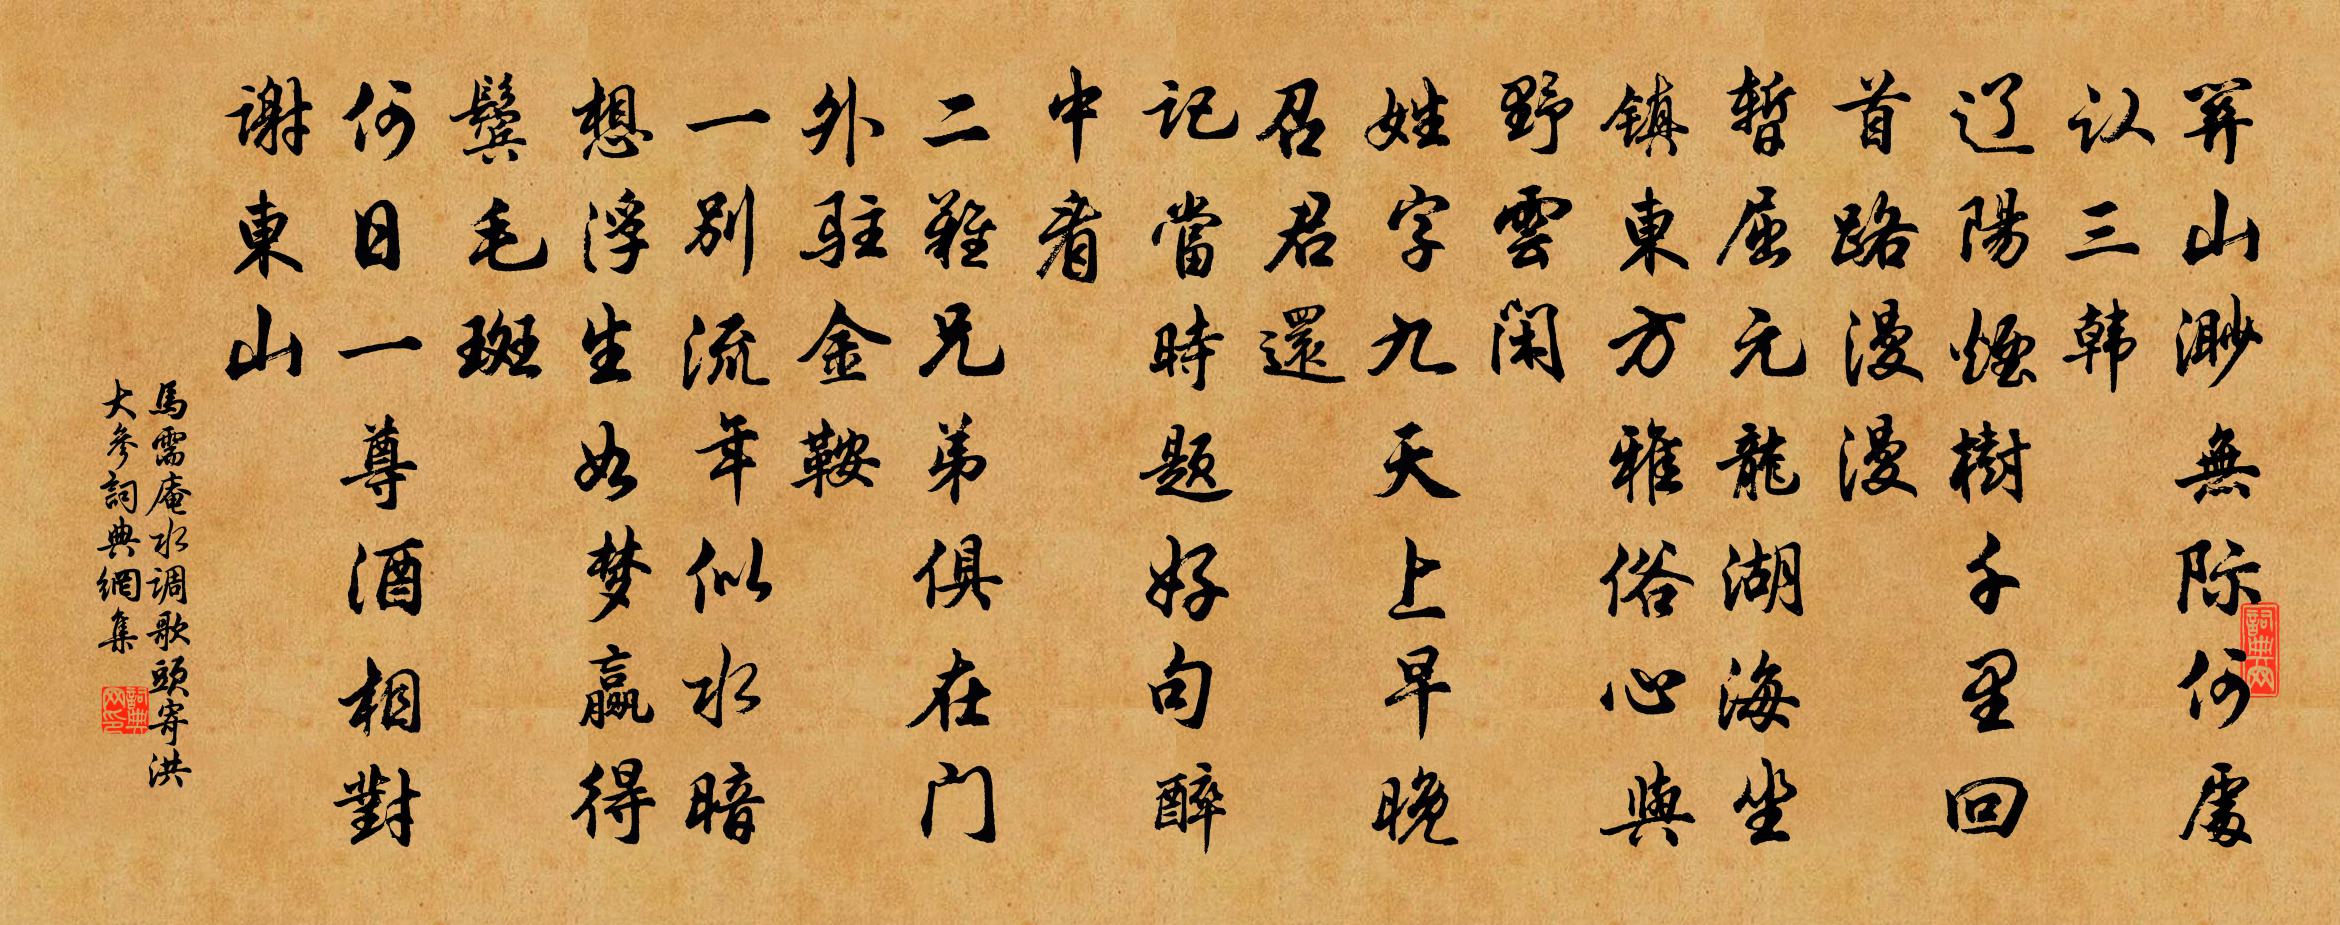 关山渺無际何處
认三韩
辽陽煙樹千里回
首路漫漫
暫屈元龍湖海坐
鎮東方雅俗心與
野雲閑
姓字九天上早晚
召君還
記當時题好句醉
中看
二難兄弟俱在门
外駐金鞍
一别流年似水暗
想浮生如梦贏得
鬓毛斑
何日一尊酒相對
謝東山
馬需庵水调歌頭寄洪
大參詞典網集
詞典网
詞典网印